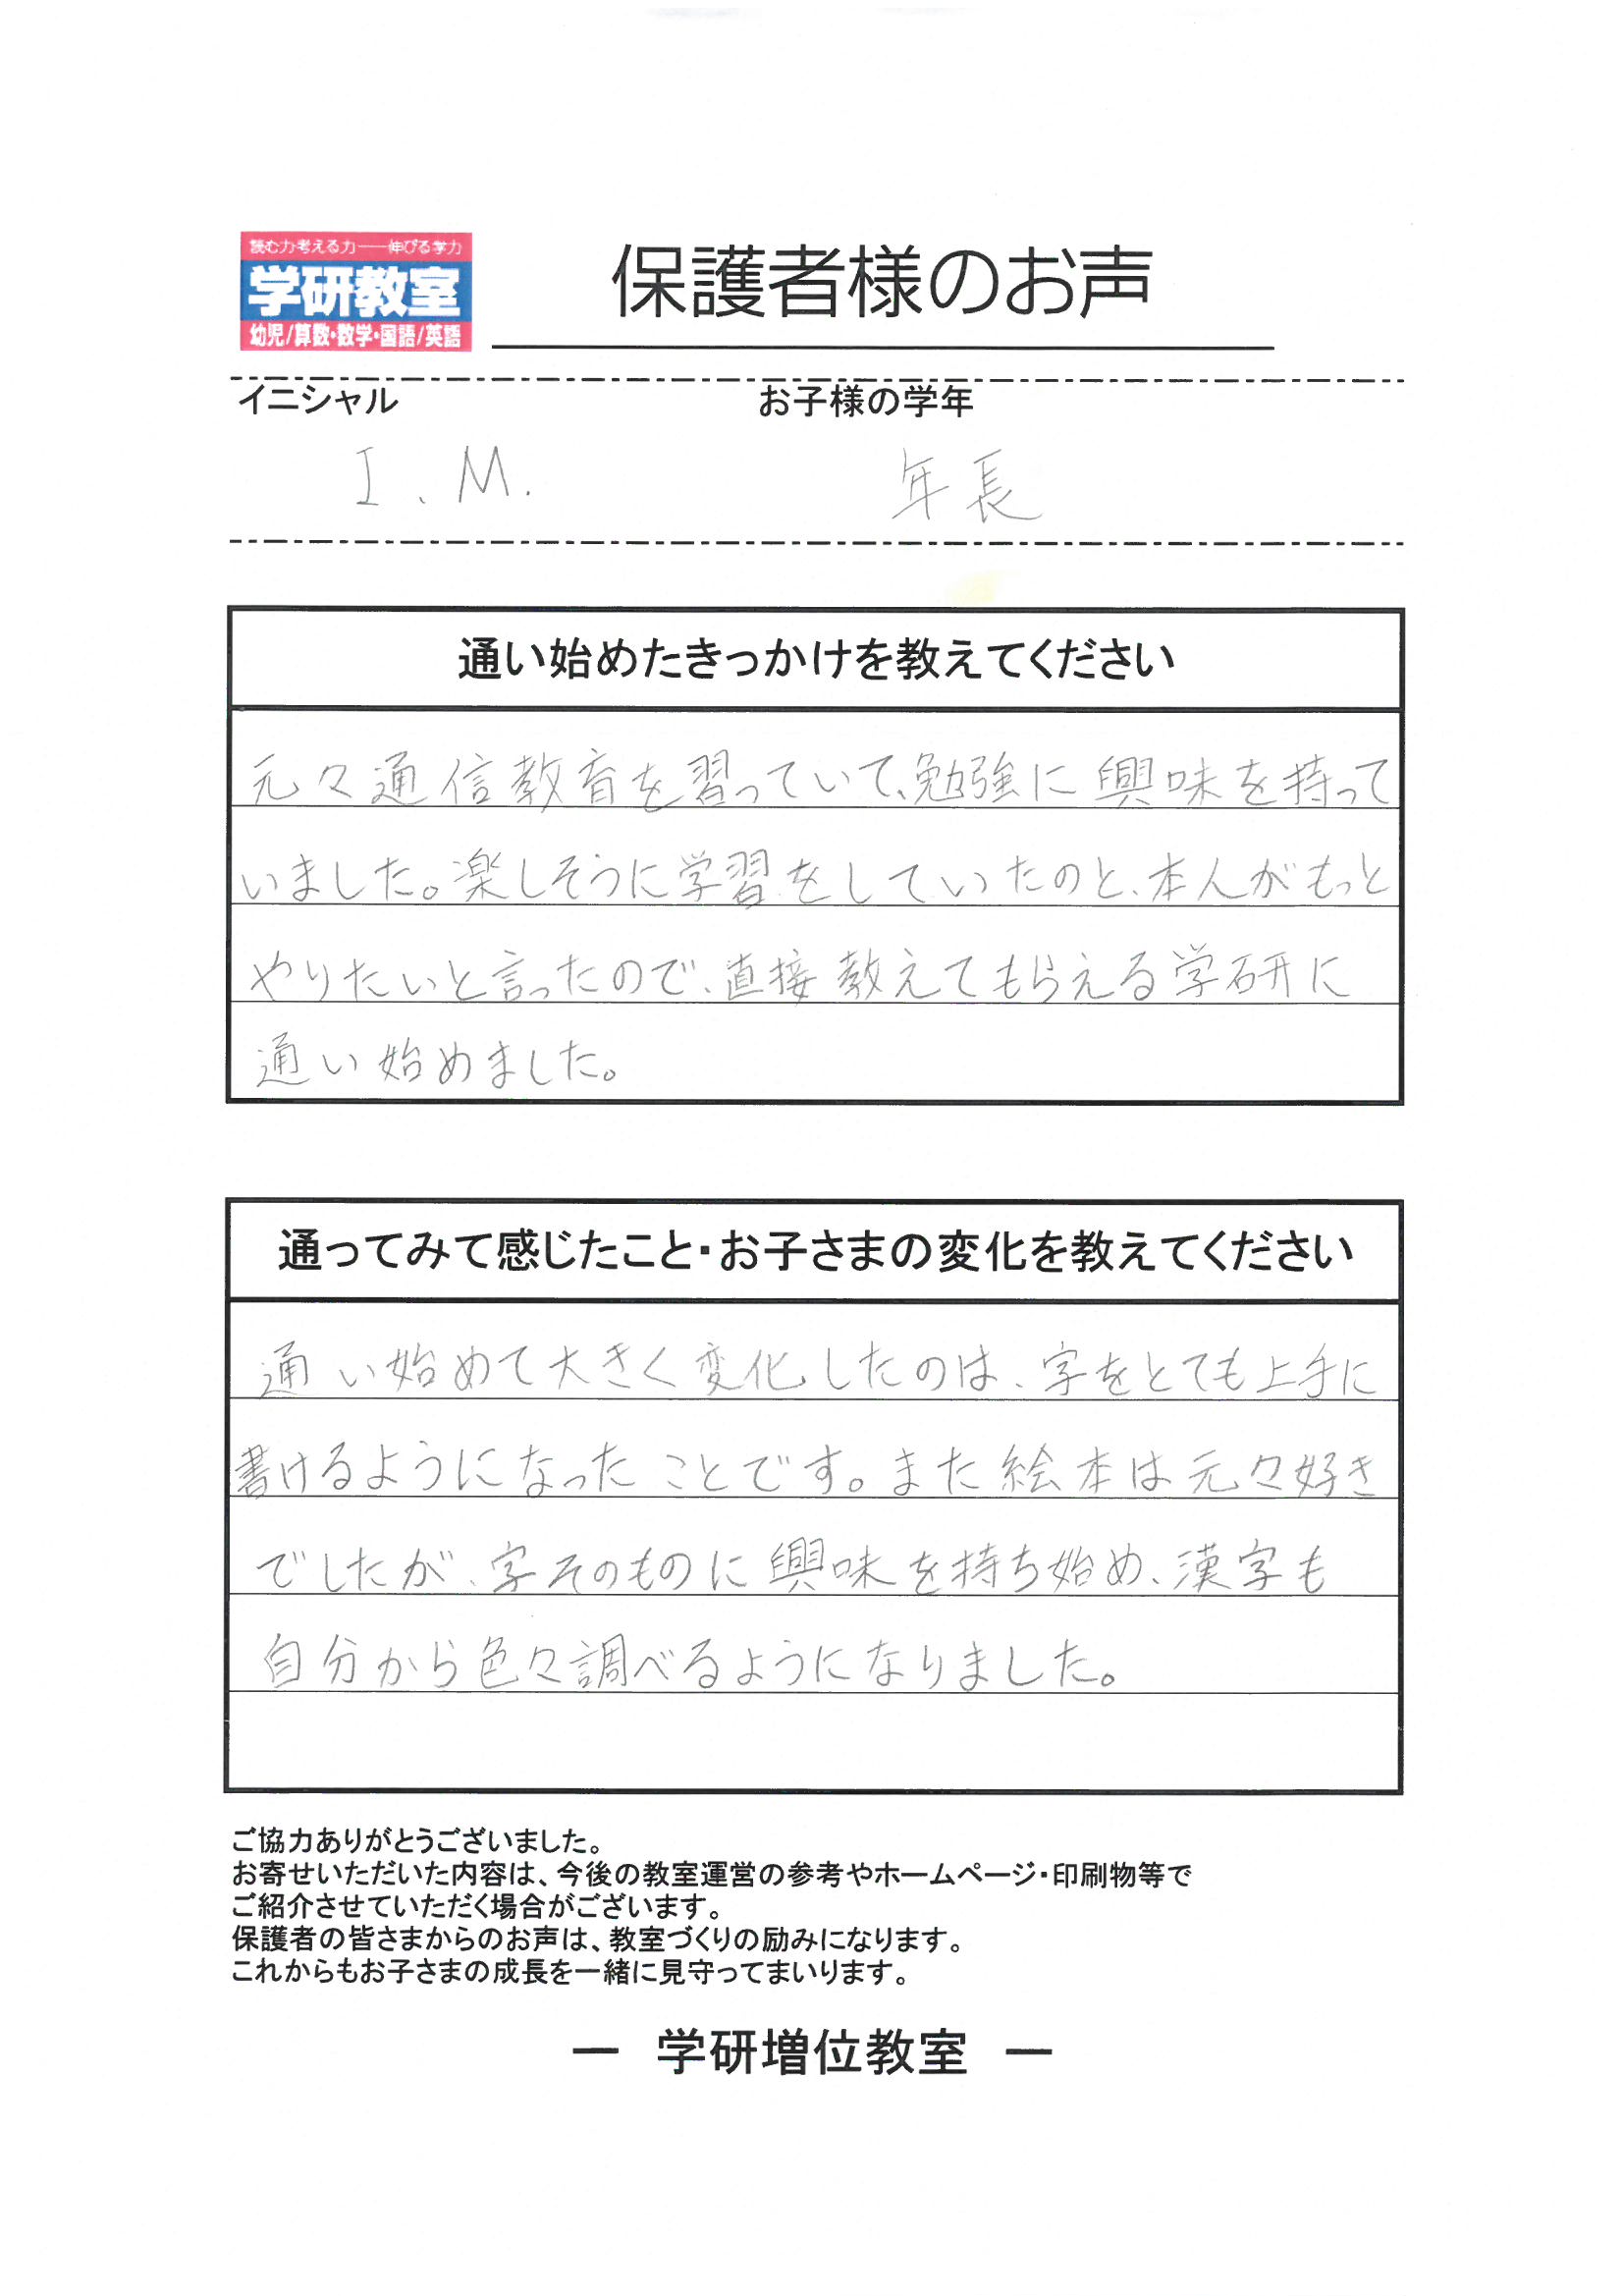 読む力考える力――伸びる学力
学研教室
幼児/算数・数学・国語/英語
保護者様のお声
イニシャル
お子様の学年
I、M.
年長
通い始めたきっかけを教えてください
元々通信教育を習っていて、勉強に興味を持って
いました。楽しそうに学習をしていたのと、本人がもっと
やりたいと言ったので、直接教えてもらえる学研に
通い始めました。
通ってみて感じたこと・お子さまの変化を教えてください
通い始めて大きく変化したのは、字をとても上手に
書けるようになったことです。また絵本は元々好き
でしたが、字そのものに興味を持ち始め、漢字も
自分から色々調べるようになりました。
ご協力ありがとうございました。
お寄せいただいた内容は、今後の教室運営の参考やホームページ・印刷物等で
ご紹介させていただく場合がございます。
保護者の皆さまからのお声は、教室づくりの励みになります。
これからもお子さまの成長を一緒に見守ってまいります。
― 学研増位教室 ―